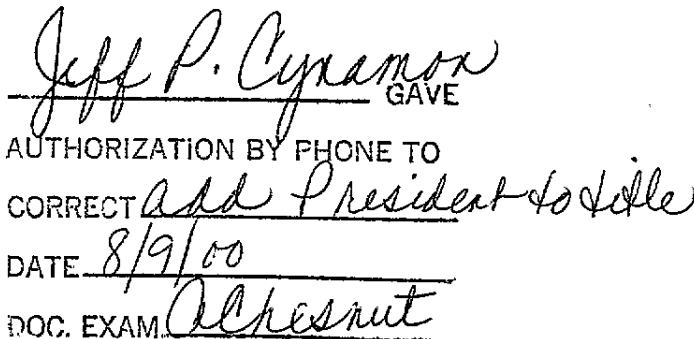 Jeff P. Cynamon GAVE
AUTHORIZATION BY PHONE TO
CORRECT add President to title
DATE 8/9/00
DOC. EXAM. AChesnut